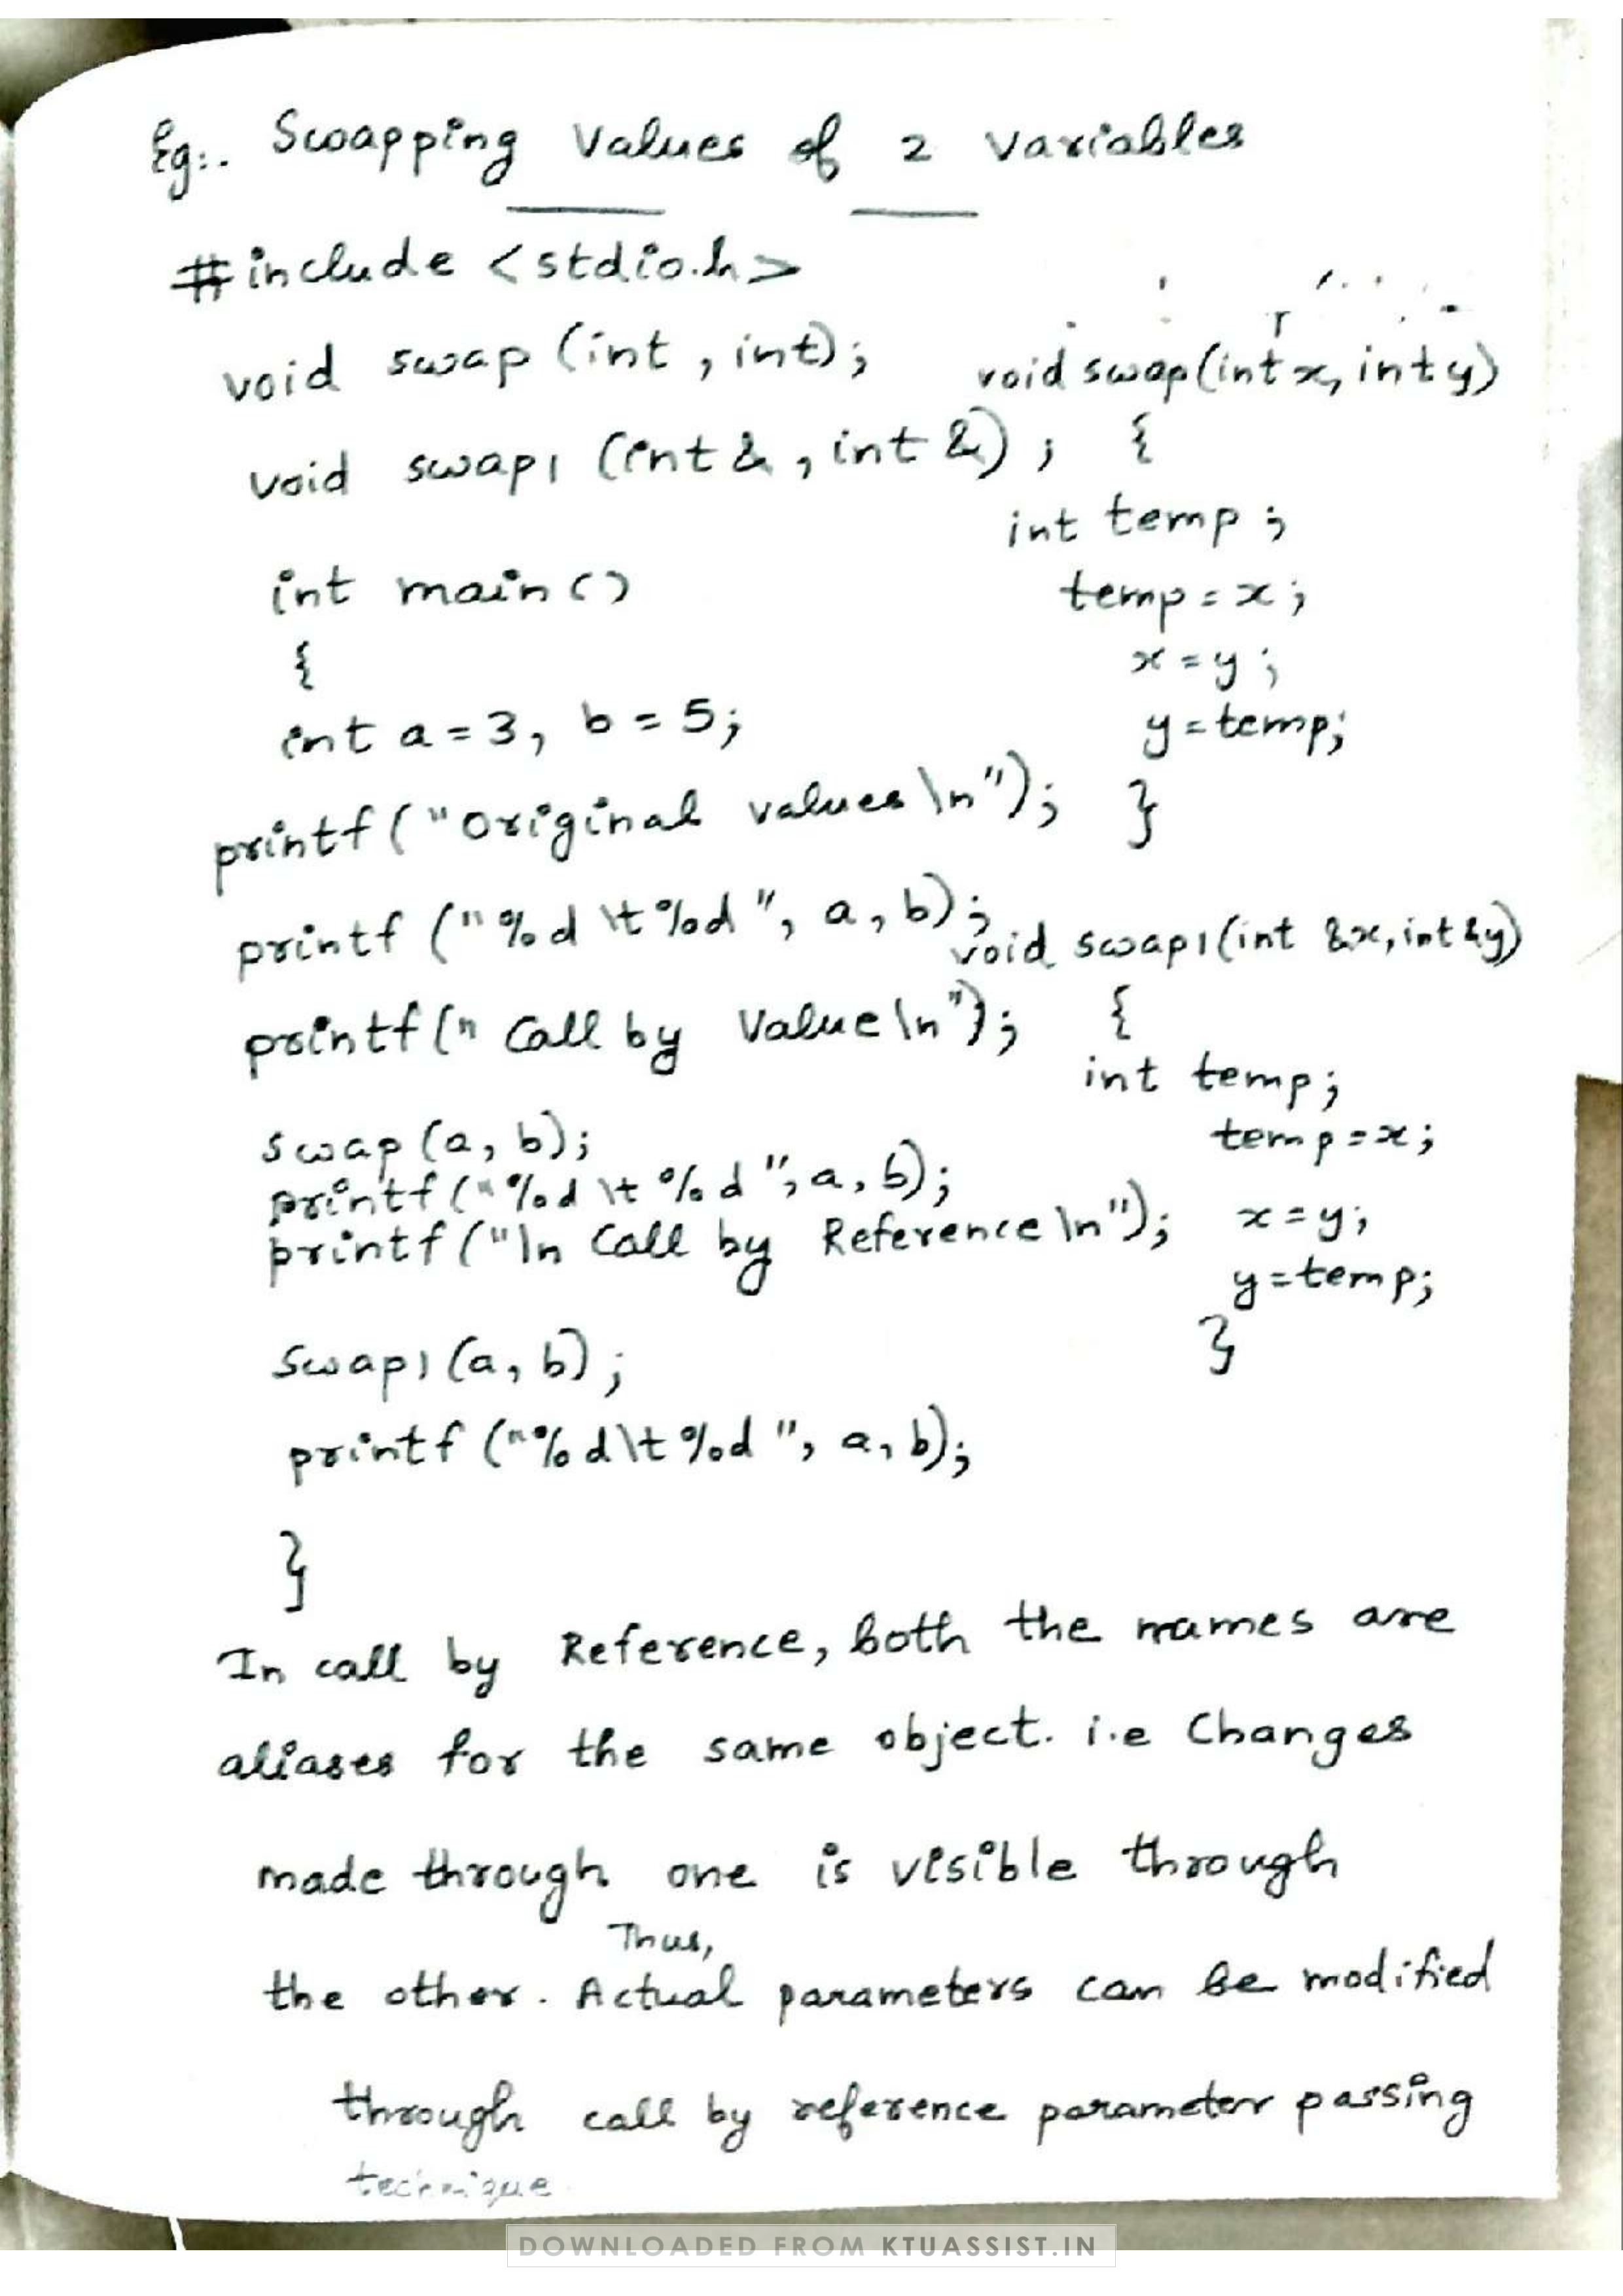 Eg:. Swapping Values of 2 Variables
#include <stdio.h>
void swap (int , int);
void swap1 (int & , int &) ;
int main ()
{
int a = 3, b = 5;
printf ("Original values \n");
printf ("%d \t %d ", a, b);
printf (" Call by Value \n");
swap (a, b);
printf ("%d \t %d ", a, b);
printf ("\n Call by Reference \n");
swap1 (a, b) ;
printf ("%d \t %d ", a, b);
}
void swap (int x, int y)
{
int temp ;
temp = x ;
x = y ;
y = temp;
}
void swap1 (int &x, int &y)
{
int temp;
temp = x;
x = y;
y = temp;
}
In call by Reference, both the names are
aliases for the same object. i.e Changes
made through one is visible through
the other. Thus, Actual parameters can be modified
through call by reference parameter passing
technique.
DOWNLOADED FROM KTUASSIST.IN